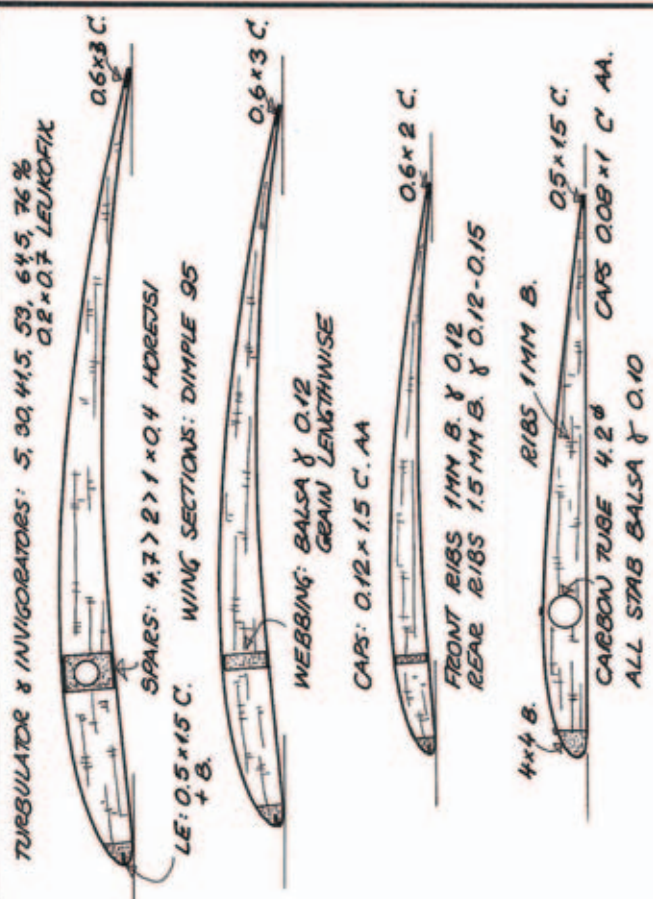 TURBULATOR & INVIGORATORS: 5, 30, 41.5, 53, 64.5, 76 %
0.2 × 0.7 LEUKOFIX
0.6×3 C.
SPARS: 4.7 > 2 > 1 × 0.4 HOREJSI
LE: 0.5 × 1.5 C.
+ B.
WING SECTIONS: DIMPLE 95
0.6 × 3 C.
WEBBING: BALSA γ 0.12
GRAIN LENGTHWISE
CAPS: 0.12 × 1.5 C. AA
0.6 × 2 C.
FRONT RIBS 1MM B. γ 0.12
REAR RIBS 1.5 MM B. γ 0.12-0.15
RIBS 1MM B.
0.5 × 1.5 C.
4×4 B.
CARBON TUBE 4.2ø
CAPS 0.08 × 1 C AA.
ALL STAB BALSA γ 0.10